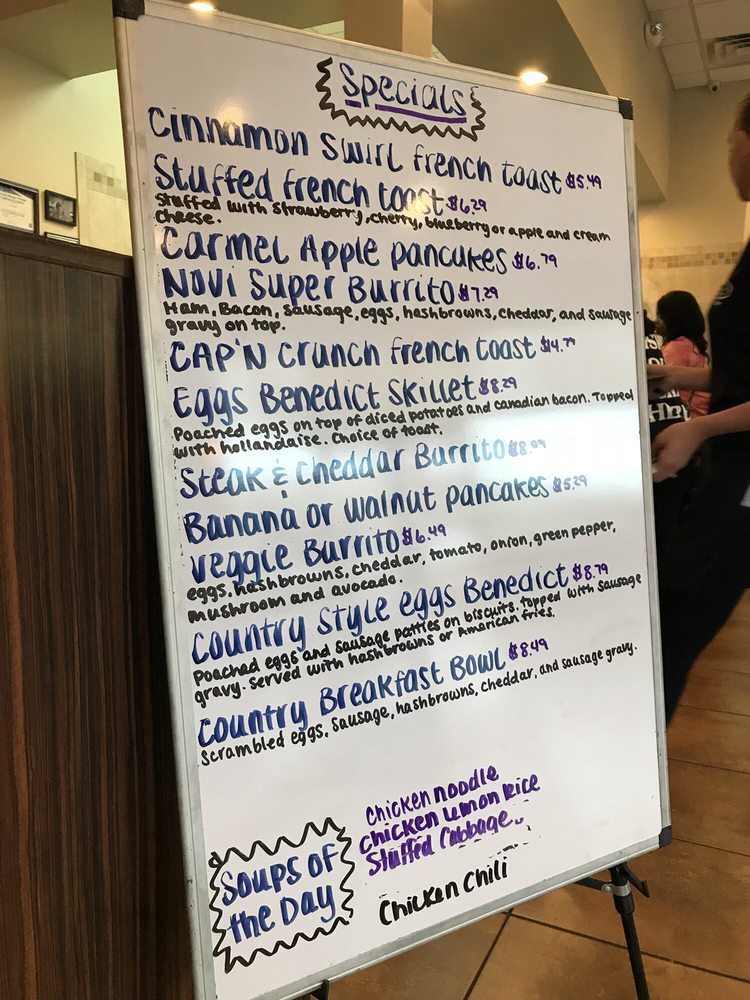 Specials
Cinnamon Swirl french toast $5.49
Stuffed french toast $6.29
Stuffed with strawberry, cherry, blueberry or apple and cream
cheese.
Carmel Apple pancakes $6.79
Novi Super Burrito $7.29
Ham, Bacon, sausage, eggs, hashbrowns, cheddar, and sausage
gravy on top.
CAP'N Crunch french toast
Eggs Benedict Skillet $8.29
Poached eggs on top of diced potatoes and canadian bacon. Topped
with hollandaise. Choice of toast.
Steak & Cheddar Burrito
Banana or Walnut pancakes $5.29
Veggie Burrito $6.49
eggs, hashbrowns, cheddar, tomato, onion, green pepper,
mushroom and avocado.
Country Style eggs Benedict $8.79
Poached eggs and sausage patties on biscuits. topped with sausage
gravy. Served with hashbrowns or American fries.
Country Breakfast Bowl $8.49
Scrambled eggs, sausage, hashbrowns, cheddar, and sausage gravy.
Soups of
the Day
Chicken noodle
Chicken Lemon Rice
Stuffed Cabbage
Chicken Chili